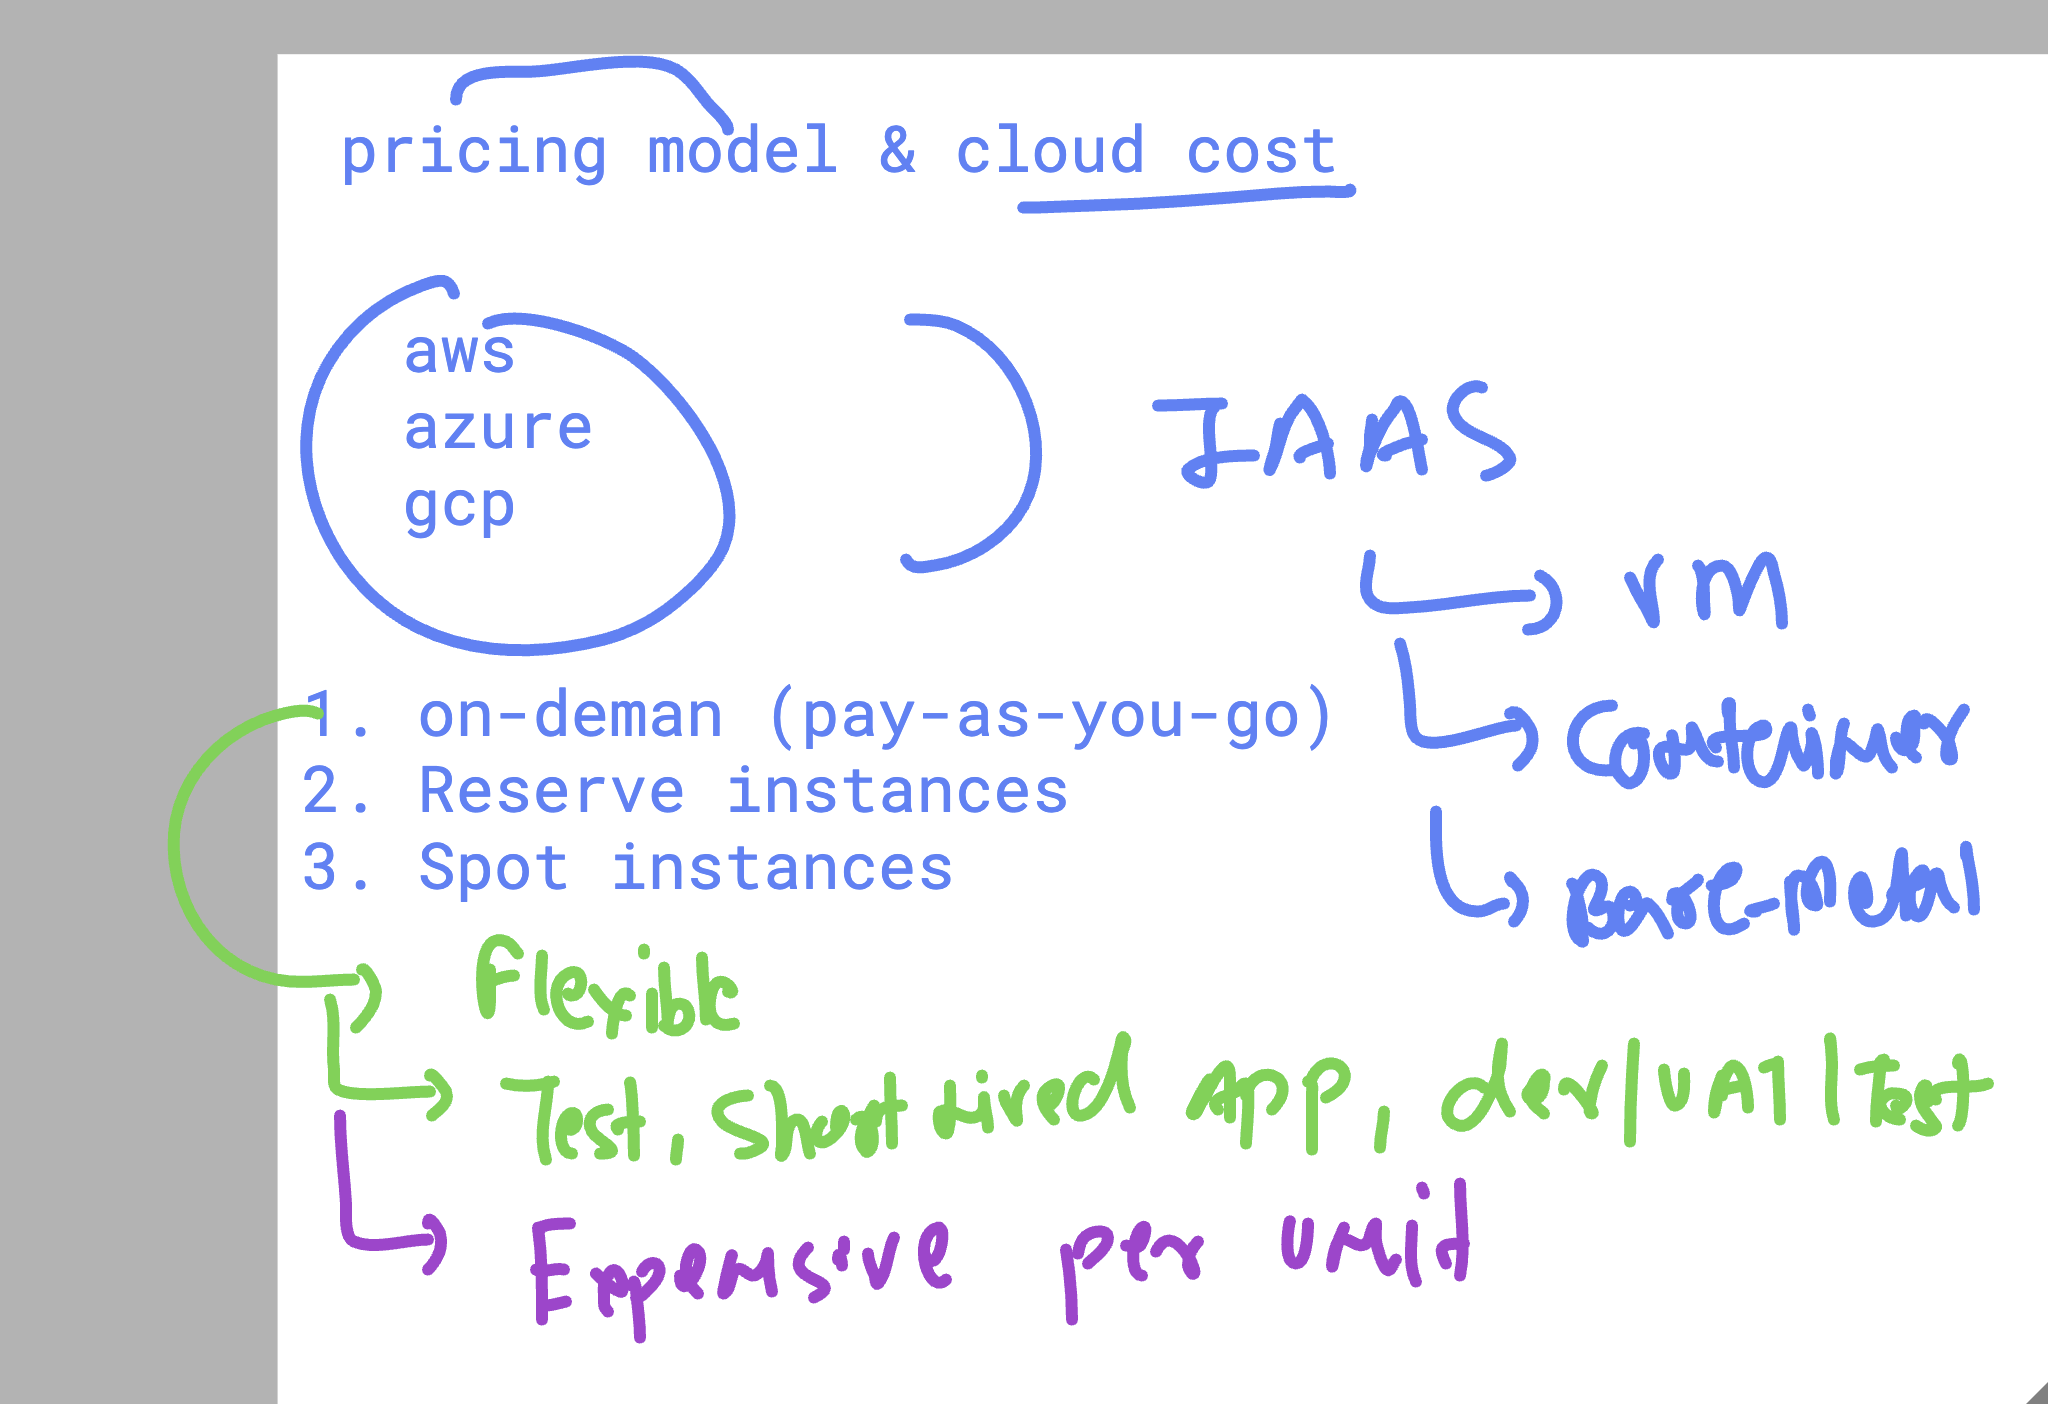 pricing model & cloud cost
aws
azure
gcp
IAAS
VM
Container
Bare-Metal
1. on-deman (pay-as-you-go)
2. Reserve instances
3. Spot instances
Flexible
Test, Short lived App, dev/UAT/Test
Expensive per unit